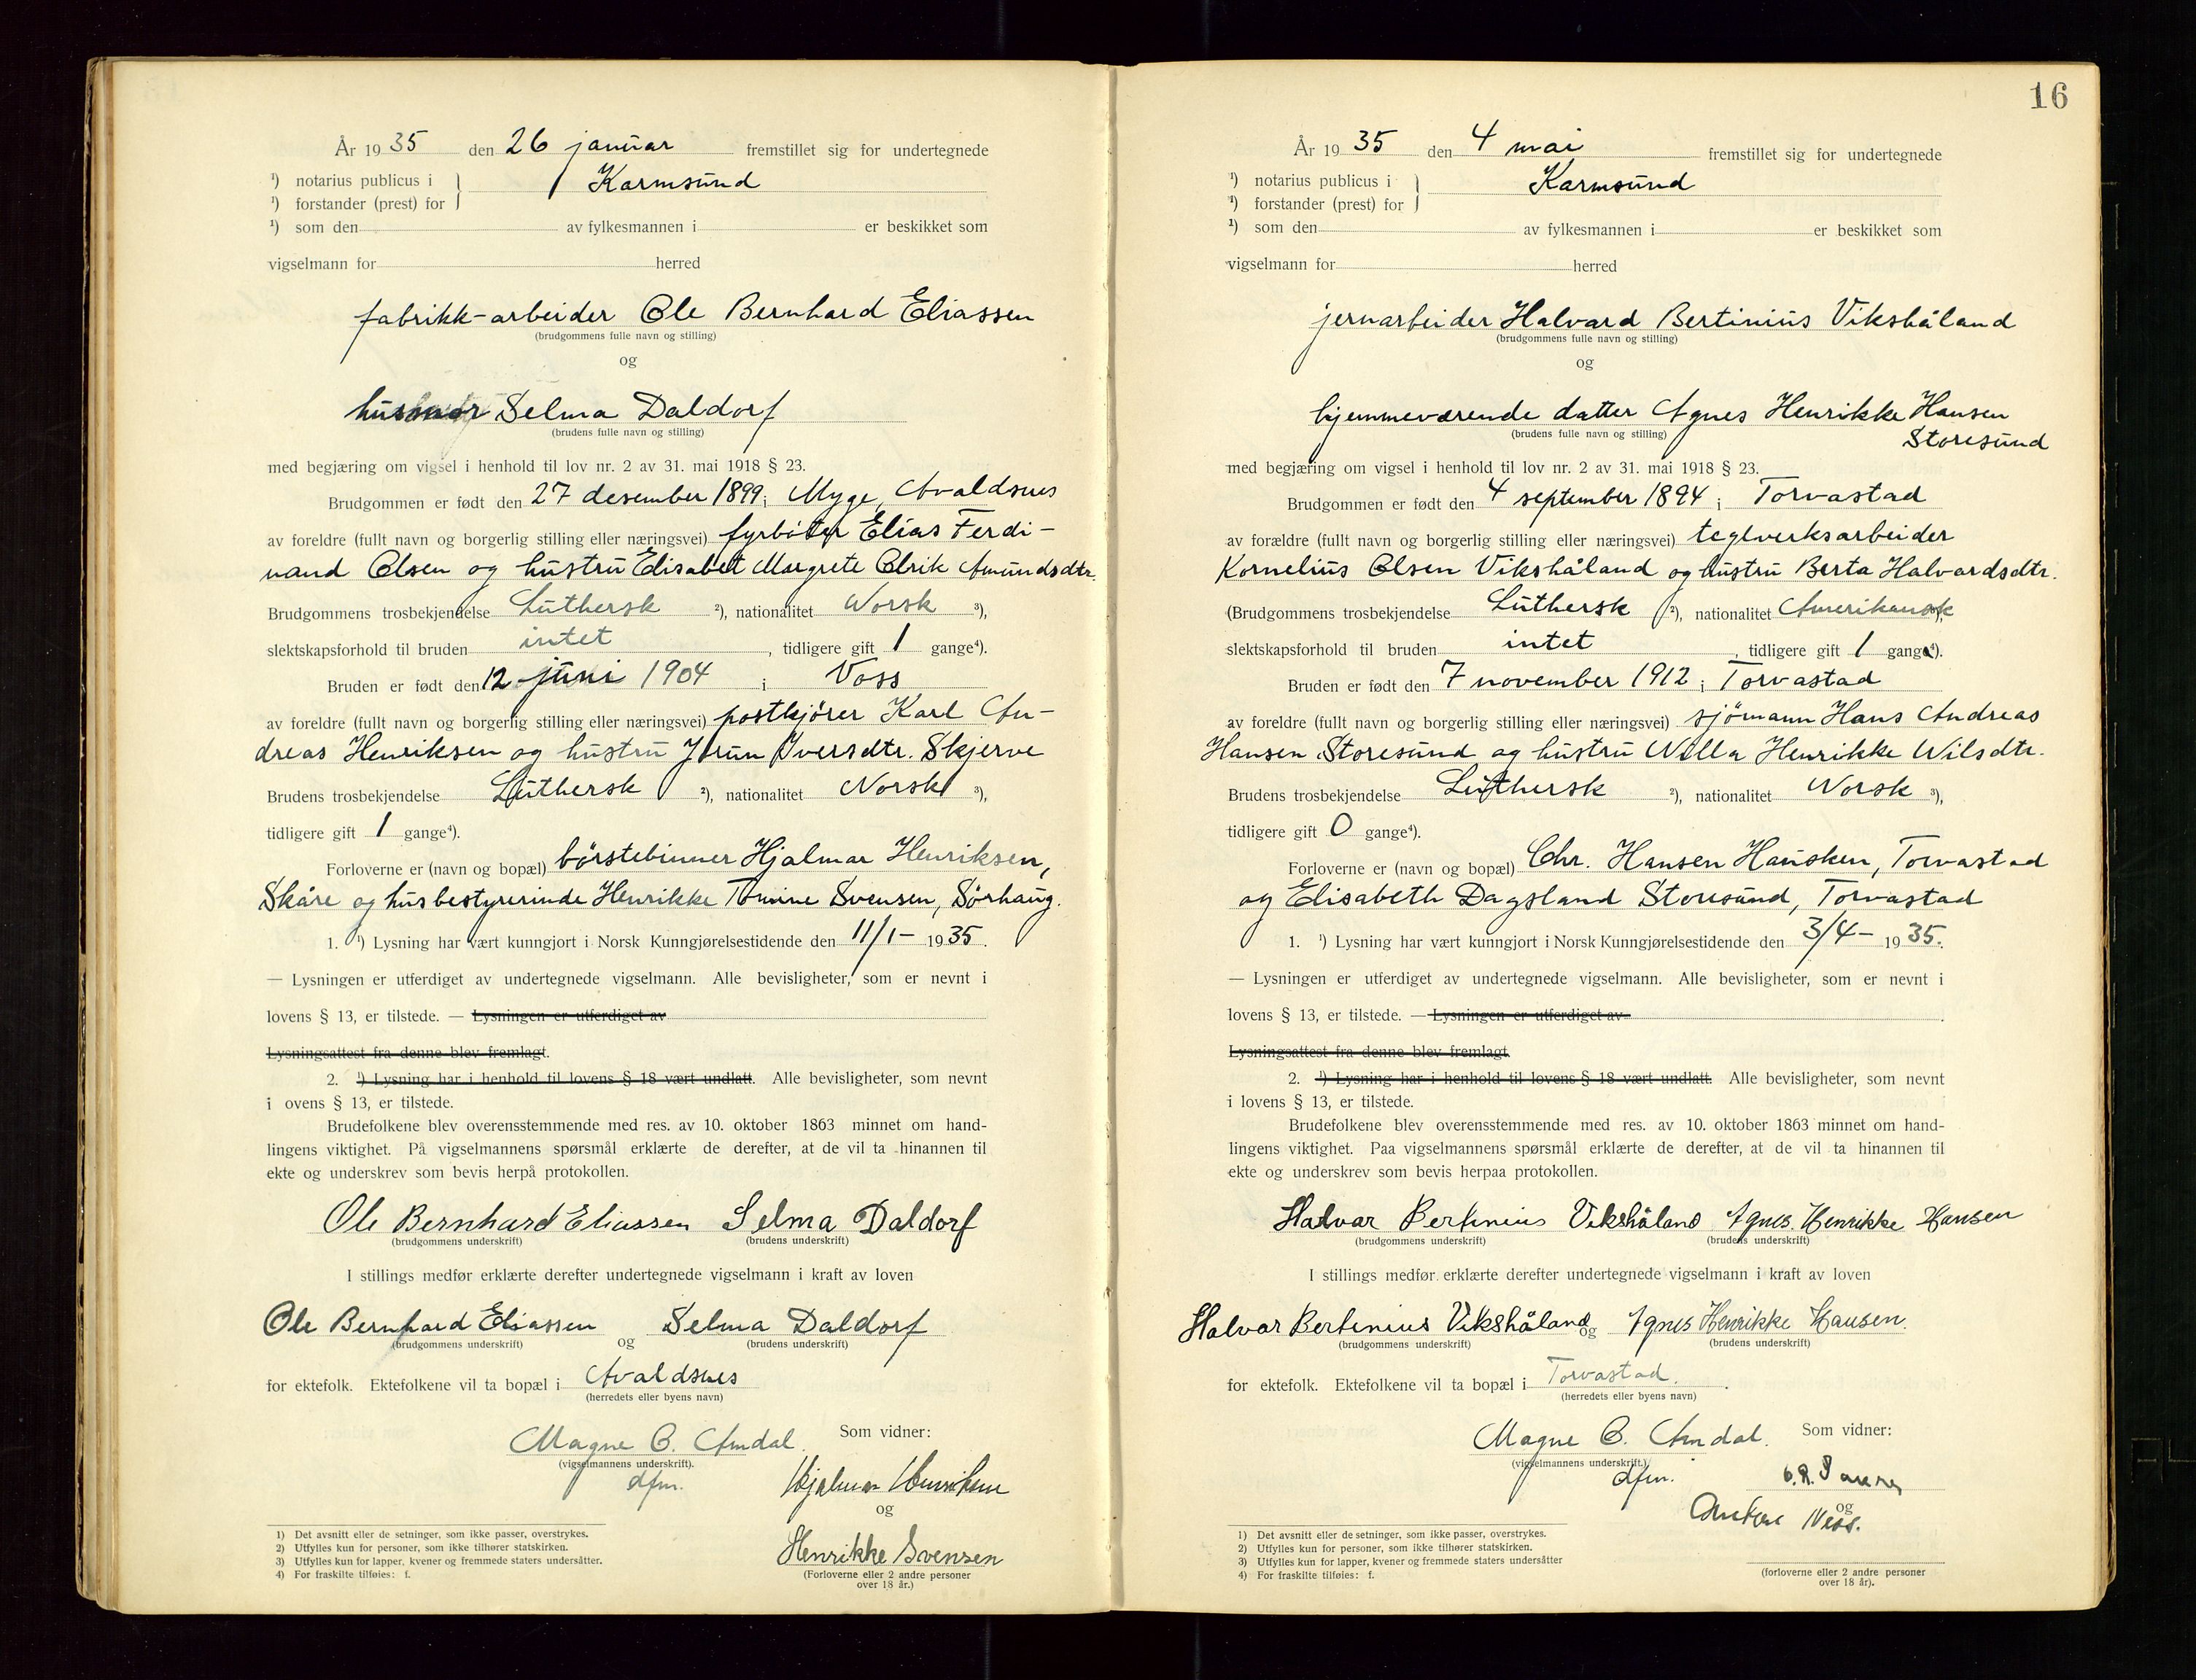 År 1935 den 26 januar fremstillet sig for undertegnede
¹) notarius publicus i } Karmsund
¹) forstander (prest) for
¹) som den av fylkesmannen i er beskikket som
vigselmann for herred
fabrikk-arbeider Ole Bernhard Eliassen
(brudgommens fulle navn og stilling)
og
husmor Selma Daldorf
(brudens fulle navn og stilling)
med begjæring om vigsel i henhold til lov nr. 2 av 31. mai 1918 § 23.
Brudgommen er født den 27 desember 1899 i Myge, Avaldsnes
av foreldre (fullt navn og borgerlig stilling eller næringsvei) fyrbøter Elias Ferdi-
nand Olsen og hustru Elisabet Margrete Olrik Amundsdtr.
Brudgommens trosbekjendelse Luthersk ²), nationalitet Norsk ³),
slektskapsforhold til bruden intet , tidligere gift 1 gange⁴).
Bruden er født den 12 juni 1904 i Voss
av foreldre (fullt navn og borgerlig stilling eller næringsvei) postkjører Karl An-
dreas Henriksen og hustru Jorun Iversdtr. Skjerve
Brudens trosbekjendelse Luthersk ²), nationalitet Norsk ³),
tidligere gift 1 gange⁴).
Forloverne er (navn og bopæl) børstebinner Hjalmar Henriksen,
Skåre og husbestyrerinde Henrikke Tomine Svensen, Sørhaug.
1. ¹) Lysning har vært kunngjort i Norsk Kunngjørelsestidende den 11/1- 1935.
— Lysningen er utferdiget av undertegnede vigselmann. Alle bevisligheter, som er nevnt i
lovens § 13, er tilstede. — Lysningen er utferdiget av
Lysningsattest fra denne blev fremlagt.
2. ¹) Lysning har i henhold til lovens § 18 vært undlatt. Alle bevisligheter, som nevnt
i ovens § 13, er tilstede.
Brudefolkene blev overensstemmende med res. av 10. oktober 1863 minnet om hand-
lingens viktighet. På vigselmannens spørsmål erklærte de derefter, at de vil ta hinannen til
ekte og underskrev som bevis herpå protokollen.
Ole Bernhard Eliassen Selma Daldorf
(brudgommens underskrift) (brudens underskrift)
I stillings medfør erklærte derefter undertegnede vigselmann i kraft av loven
Ole Bernhard Eliassen og Selma Daldorf
(brudgommens underskrift) (brudens underskrift)
for ektefolk. Ektefolkene vil ta bopæl i Avaldsnes
(herredets eller byens navn)
Magne O. Amdal. Som vidner:
(vigselmannens underskrift).
dfm. Hjalmar Henriksen
og
Henrikke Svensen
(Forloverne eller 2 andre personer
over 18 år.)
1) Det avsnitt eller de setninger, som ikke passer, overstrykes.
2) Utfylles kun for personer, som ikke tilhører statskirken.
3) Utfylles kun for lapper, kvener og fremmede staters undersåtter.
4) For fraskilte tilføies: f.
16
År 1935 den 4 mai fremstillet sig for undertegnede
¹) notarius publicus i } Karmsund
¹) forstander (prest) for
¹) som den av fylkesmannen i er beskikket som
vigselmann for herred
jernarbeider Halvard Bertinius Vikshåland
(brudgommens fulle navn og stilling)
og
hjemmeværende datter Agnes Henrikke Hansen
(brudens fulle navn og stilling) Storesund
med begjæring om vigsel i henhold til lov nr. 2 av 31. mai 1918 § 23.
Brudgommen er født den 4 september 1894 i Torvastad
av forældre (fullt navn og borgerlig stilling eller næringsvei) teglverksarbeider
Kornelius Olsen Vikshåland og hustru Berta Halvardsdtr.
(Brudgommens trosbekjendelse Luthersk ²), nationalitet Amerikansk ³),
slektskapsforhold til bruden intet , tidligere gift 1 gange⁴).
Bruden er født den 7 november 1912 i Torvastad
av foreldre (fullt navn og borgerlig stilling eller næringsvei) sjømann Hans Andreas
Hansen Storesund og hustru Nilla Henrikke Nilsdtr.
Brudens trosbekjendelse Luthersk ²), nationalitet Norsk ³),
tidligere gift 0 gange⁴).
Forloverne er (navn og bopæl) Chr. Hansen Hausken, Torvastad
og Elisabeth Dagsland Storesund, Torvastad
1. ¹) Lysning har vært kunngjort i Norsk Kunngjørelsestidende den 3/4- 1935.
— Lysningen er utferdiget av undertegnede vigselmann. Alle bevisligheter, som er nevnt i
lovens § 13, er tilstede. — Lysningen er utferdiget av
Lysningsattest fra denne blev fremlagt
2. ¹) Lysning har i henhold til lovens § 18 vært undlatt. Alle bevisligheter, som nevnt
i lovens § 13, er tilstede.
Brudefolkene blev overensstemmende med res. av 10. oktober 1863 minnet om hand-
lingens viktighet. Paa vigselmannens spørsmål erklærte de derefter, at de vil ta hinannen til
ekte og underskrev som bevis herpaa protokollen.
Halvar Bertinius Vikshåland Agnes Henrikke Hansen
(brudgommens underskrift) (brudens underskrift)
I stillings medfør erklærte derefter undertegnede vigselmann i kraft av loven
Halvar Bertinius Vikshåland og Agnes Henrikke Hansen.
(brudgommens underskrift) (brudens underskrift)
for ektefolk. Ektefolkene vil ta bopæl i Torvastad.
(herredets eller byens navn)
Magne O. Amdal. Som vidner:
(vigselmannens underskrift.)
dfm.
og
Ness.
(forloverne eller 2 andre personer
over 18 år).
1) Det avsnitt eller de setninger, som ikke passer, overstrykes.
2) Utfylles kun for personer, som ikke tilhører statskirken.
3) Utfylles kun for lapper, kvener og fremmede staters undersåtter
4) For fraskilte tilføies: f.